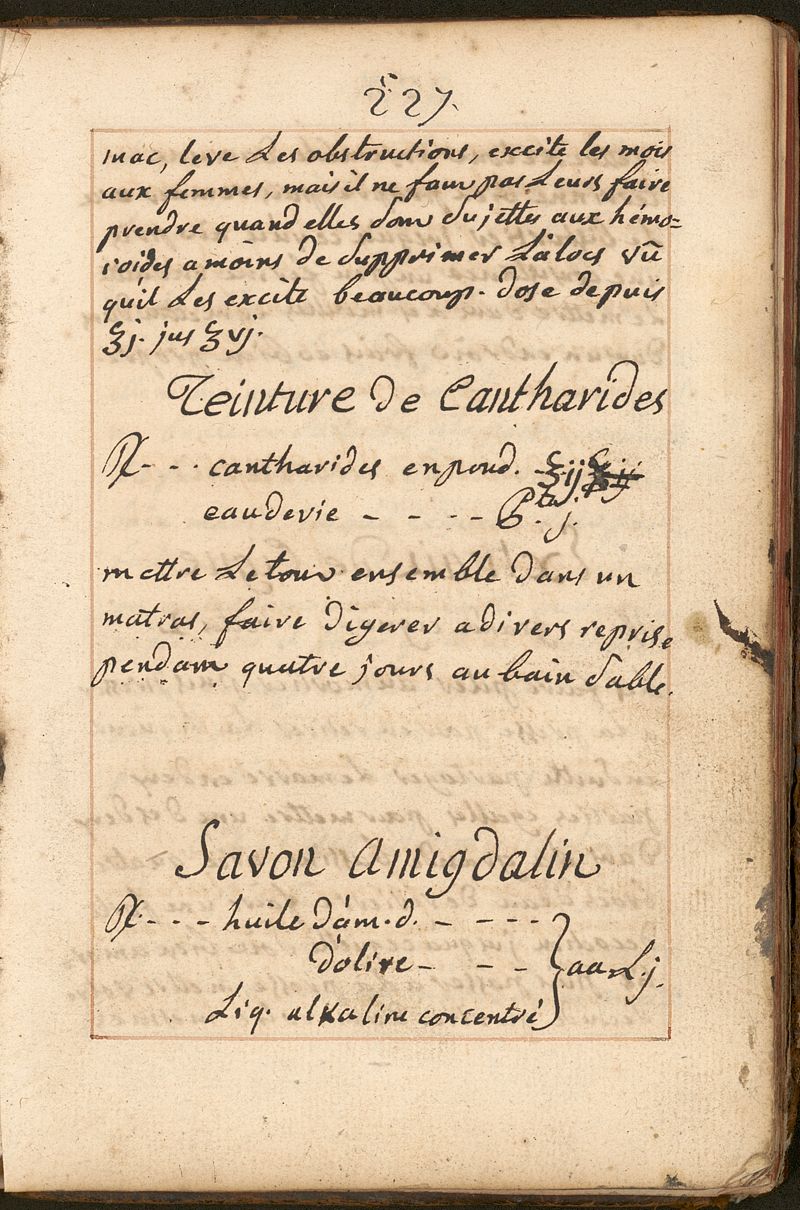 227.
mac, leve Les obstructions, excite les mois
aux femmes, mais il ne faut pas Leurs faire
prendre quand elles sont sujettes aux hémo=
roides a moins de supprimer L'aloes vû
qu'il Les excite beaucoup. dose depuis
ʒj. jus ʒvj.
Teinture de Cantharides
℞. - - cantharides en poud. ʒij
eau de vie - - - - P.te j.
mettre Le tout ensemble dans un
matras, faire digerer a divers reprise
pendant quatre jours au bain sable.
Savon Amigdalin
℞. - - - huile d'am. d. - - - -
d'olive - - - } aa L. j.
Liq. alkaline concentré